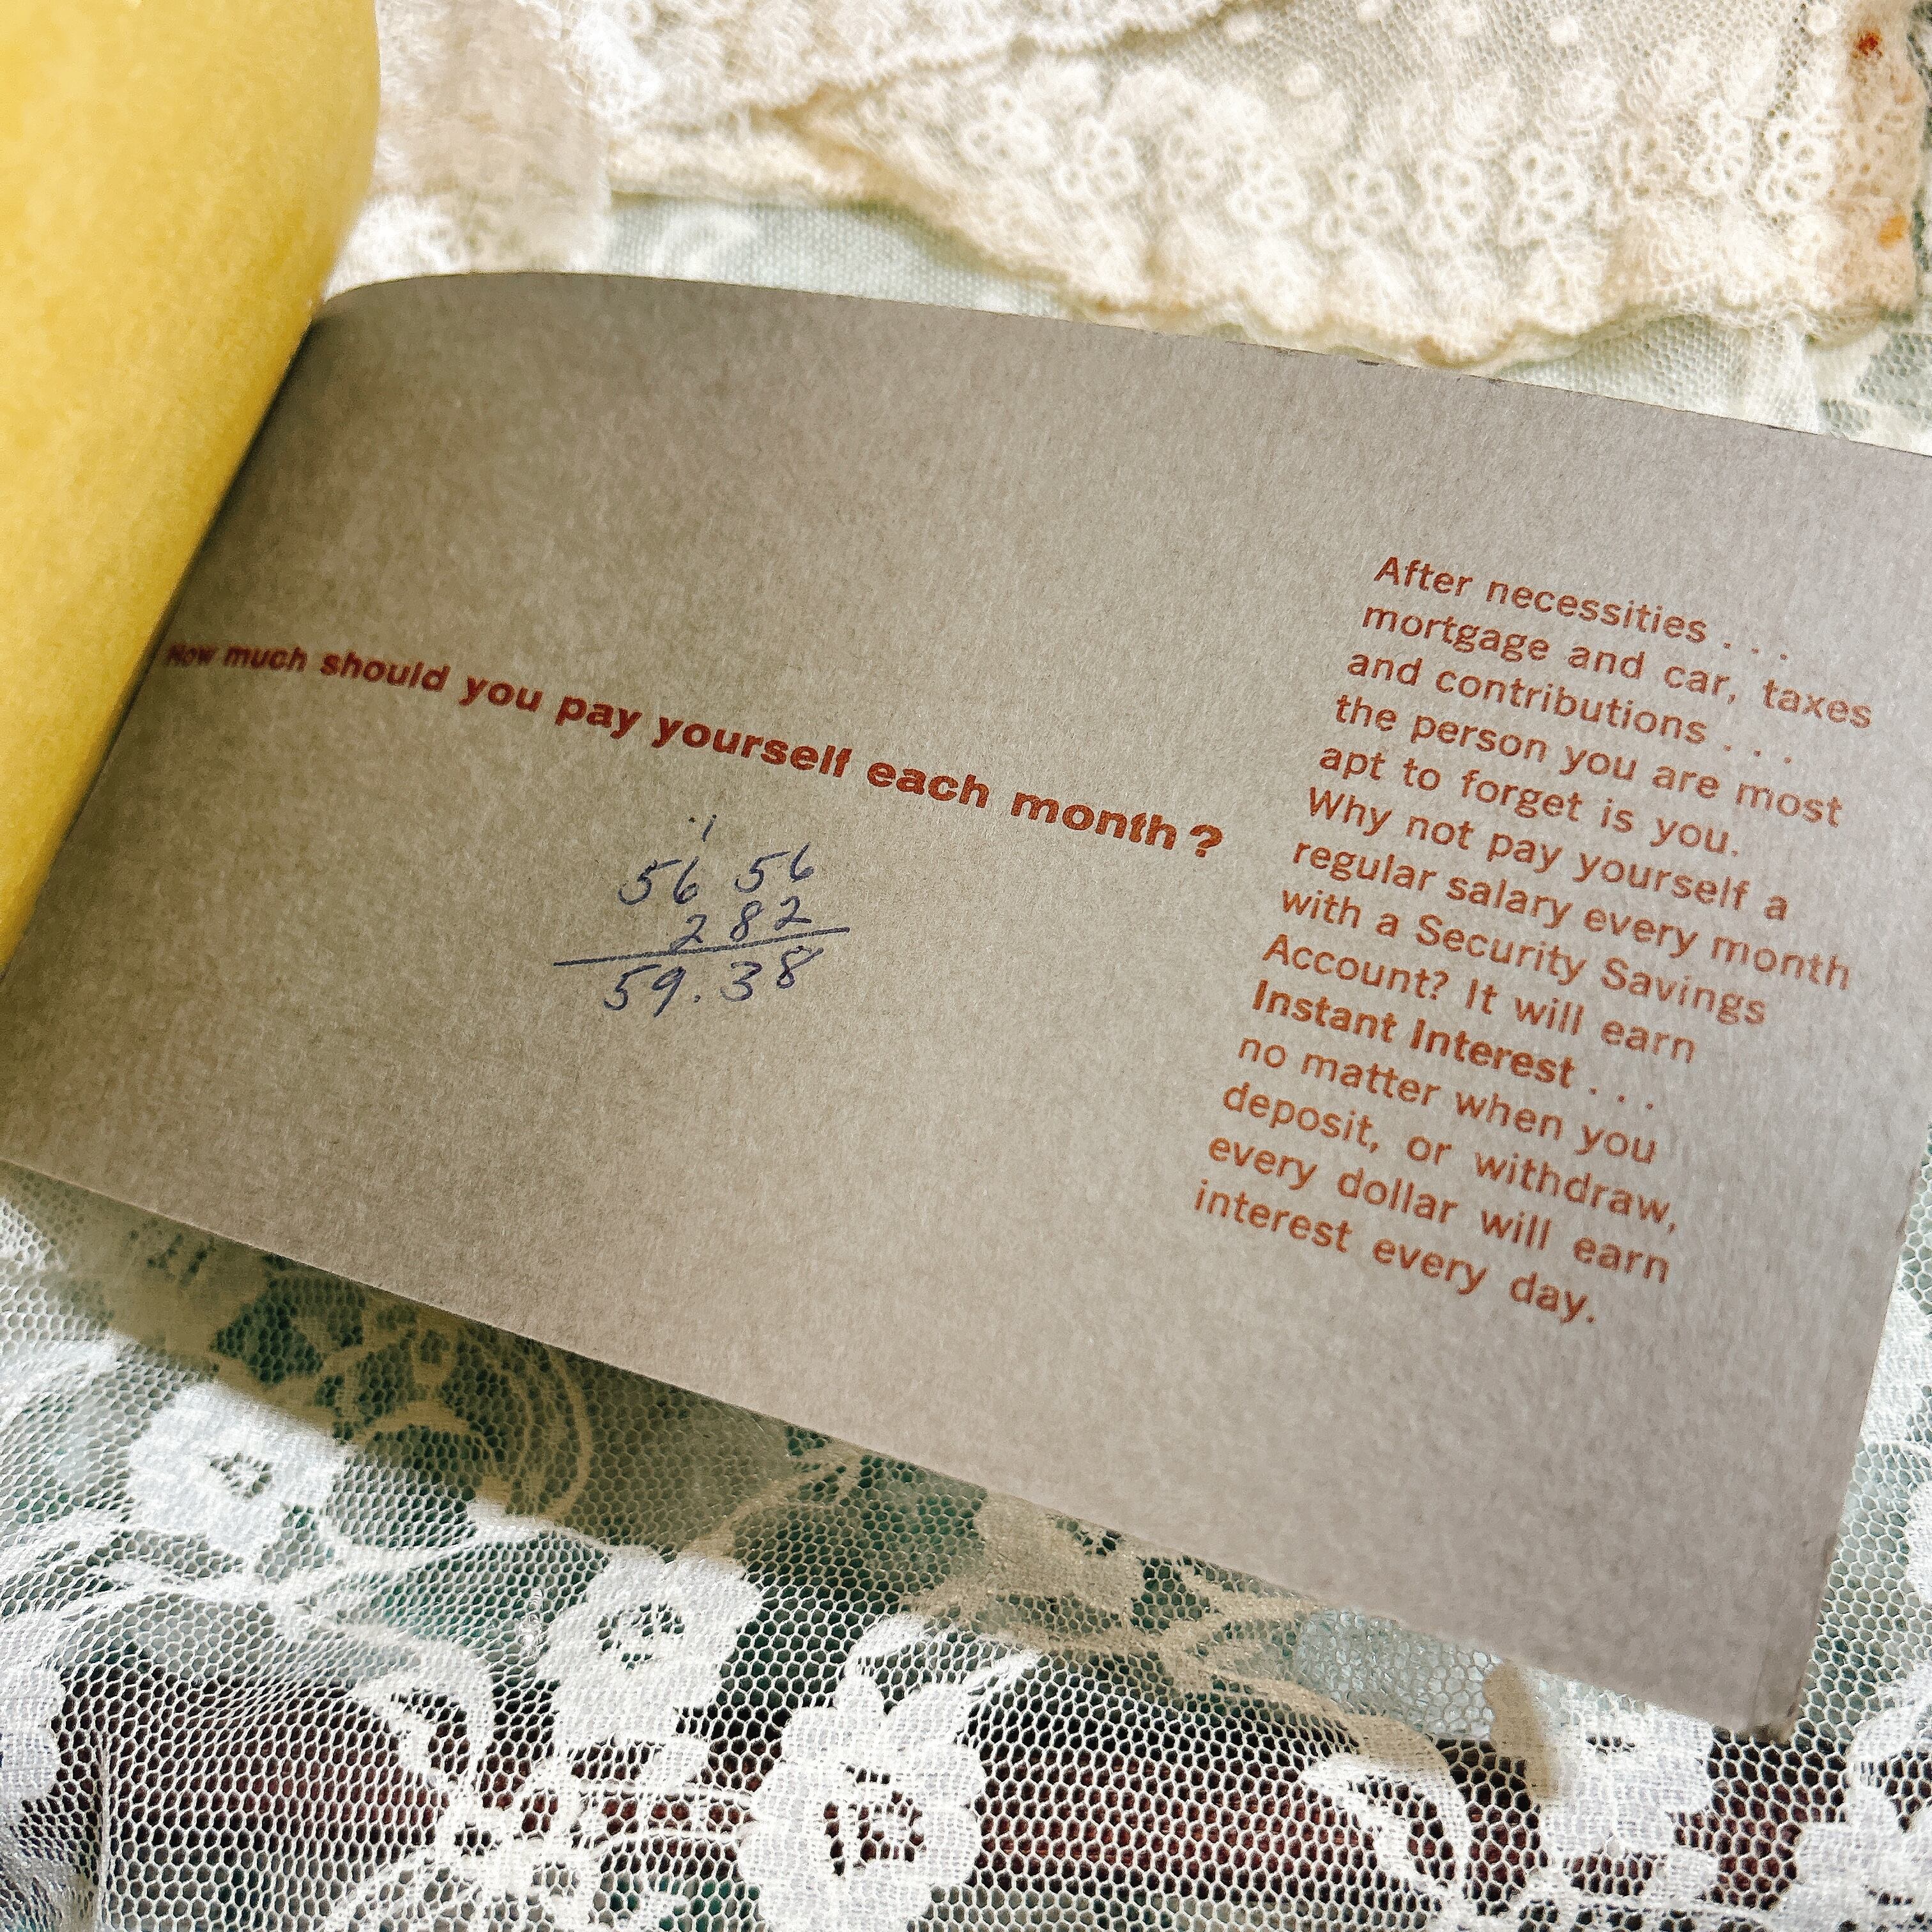 How much should you pay yourself each month?
.1
56 56
2 82
59.38
After necessities . . .
mortgage and car, taxes
and contributions . . .
the person you are most
apt to forget is you.
Why not pay yourself a
regular salary every month
with a Security Savings
Account? It will earn
Instant Interest . . .
no matter when you
deposit, or withdraw,
every dollar will earn
interest every day.